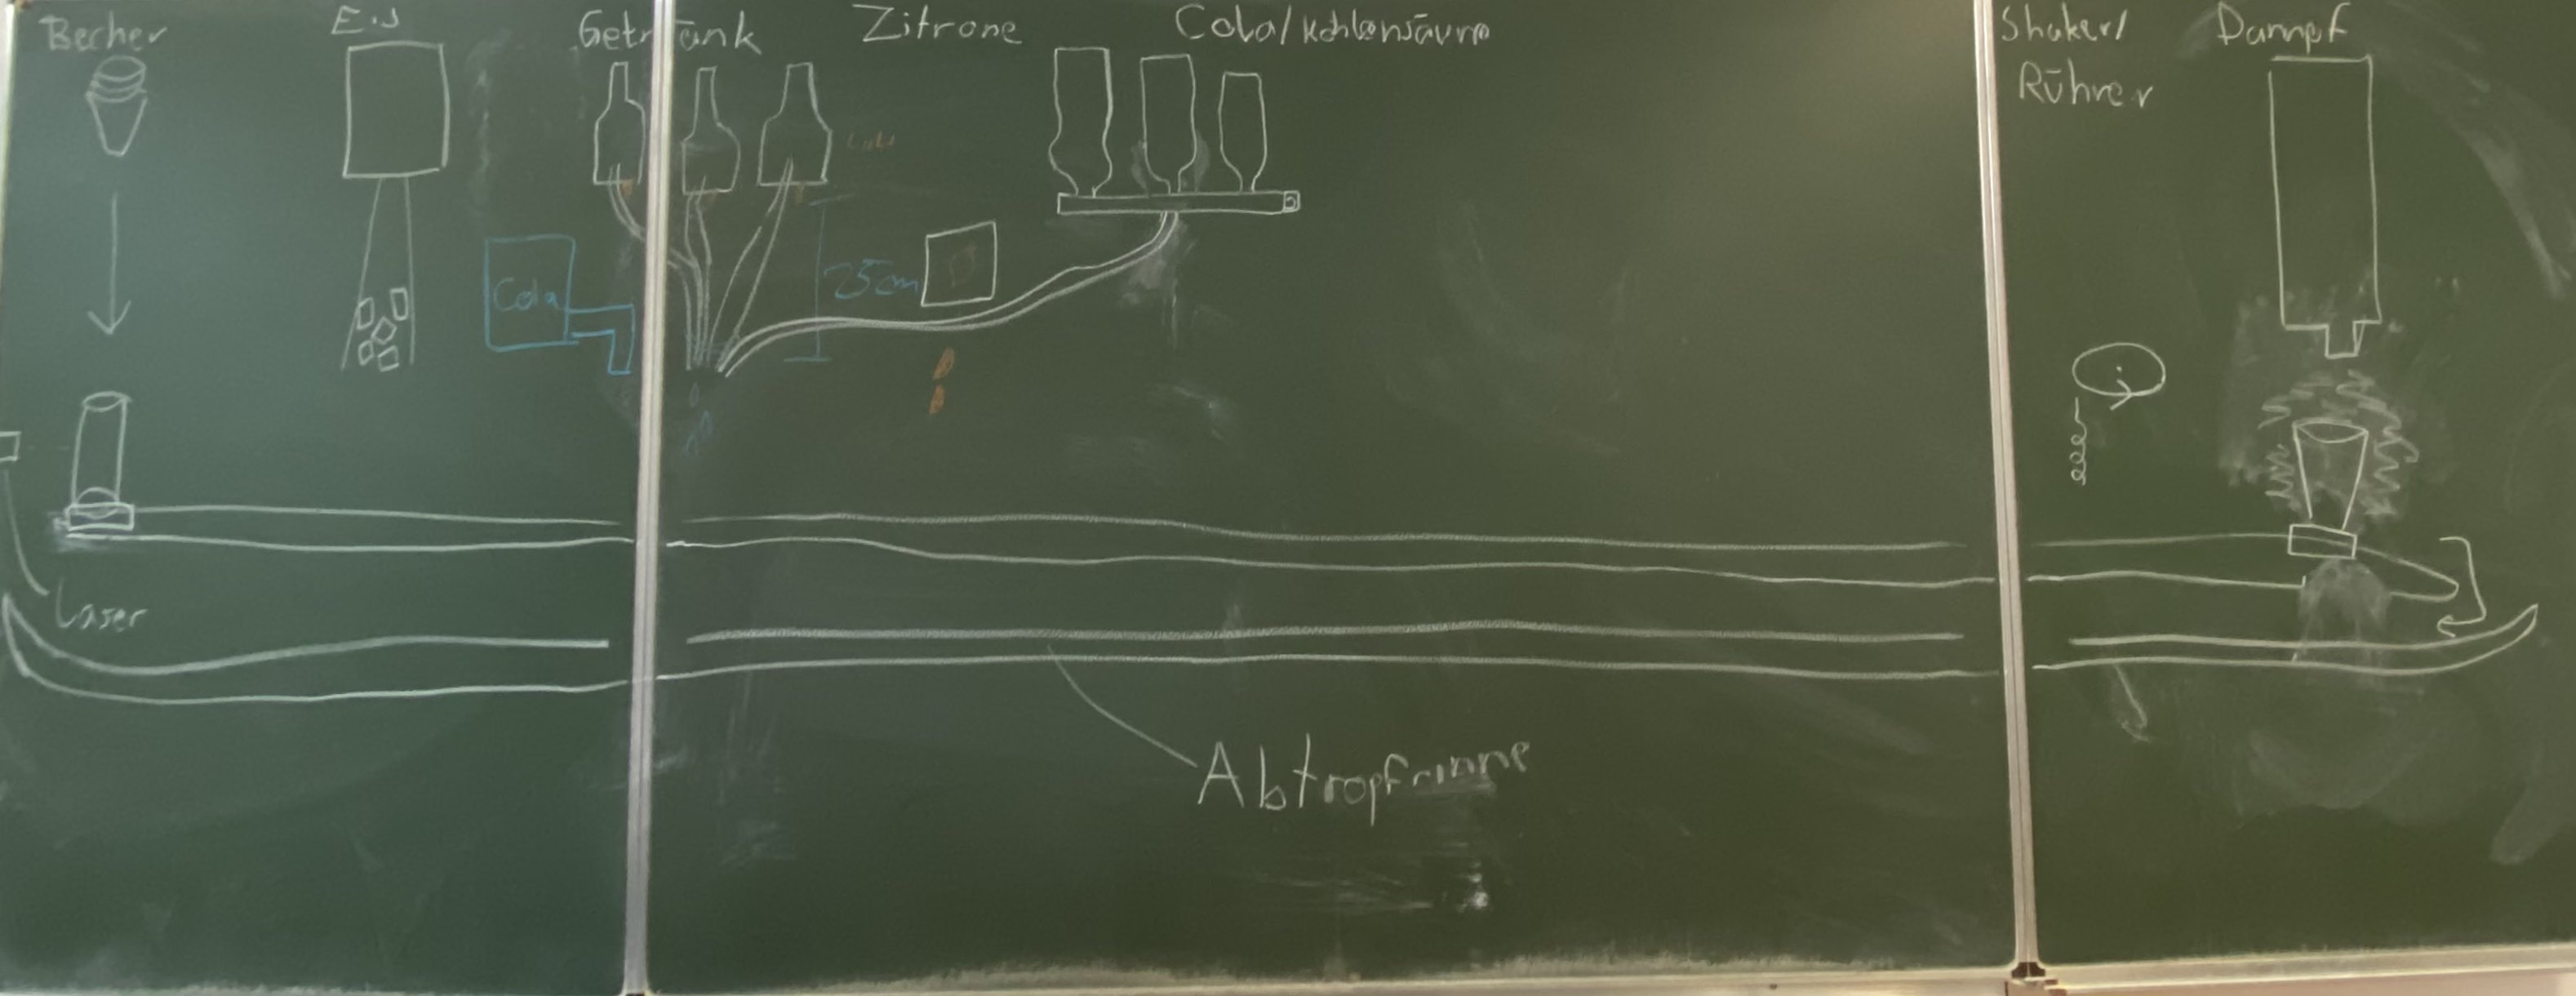 Becher
Eis
Getränk
Zitrone
Cola/Kohlensäure
Shaker/
Rührer
Dampf
Cola
25cm
Laser
Abtropfrinne